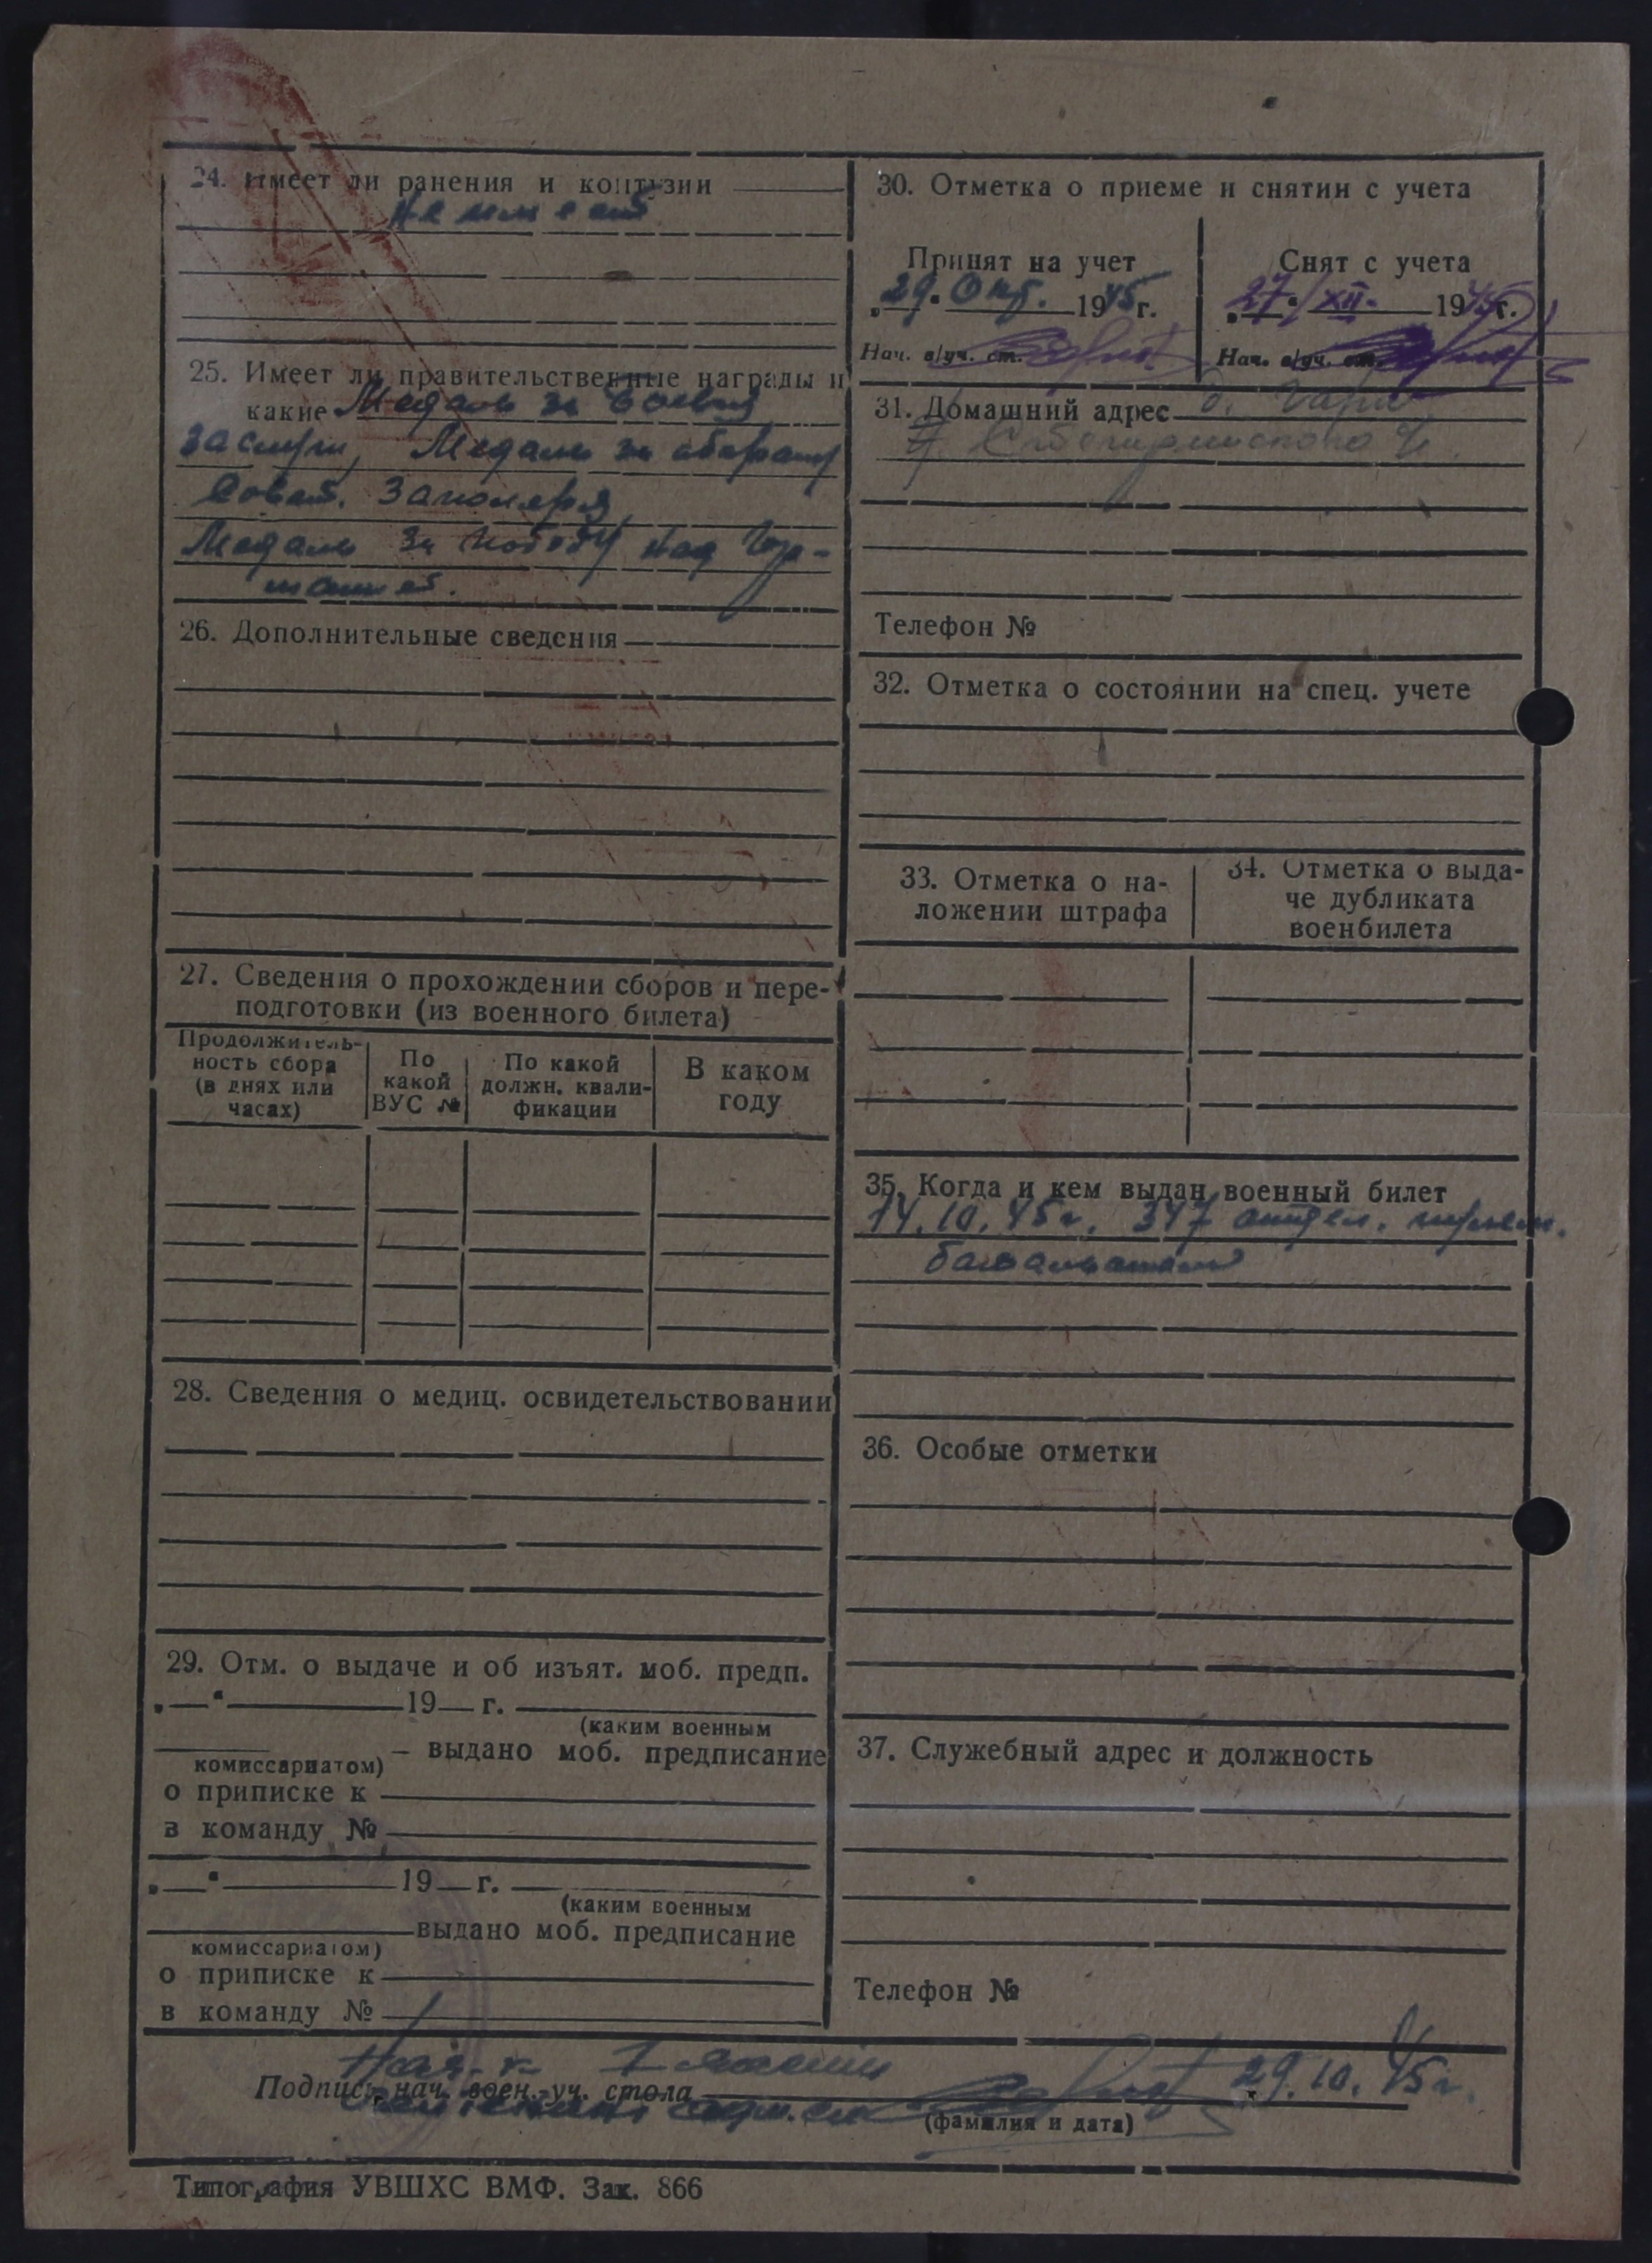 24. Имеет ли ранения и контузии
не имеет
25. Имеет ли правительственные награды и
какие Медаль за боевые
заслуги, Медаль за оборону
Совет. Заполярья
Медаль за победу над Гер-
манией.
26. Дополнительные сведения
27. Сведения о прохождении сборов и пере-
подготовки (из военного билета)
Продолжитель-
ность сбора
(в днях или
часах)
По
какой
ВУС №
По какой
должн. квали-
фикации
В каком
году
28. Сведения о медиц. освидетельствовании
29. Отм. о выдаче и об изъят. моб. предп.
„ — “ 19 — г.
(каким военным
комиссариатом) – выдано моб. предписание
о приписке к
в команду №
„ — “ 19 — г.
(каким военным
выдано моб. предписание
комиссариатом)
о приписке к
в команду №
30. Отметка о приеме и снятии с учета
Принят на учет
„29“ Окт. 1945 г.
Нач. в/уч. ст.
Снят с учета
„27“ XII. 1945 г.
Нач. в/уч. ст.
31. Домашний адрес
Телефон №
32. Отметка о состоянии на спец. учете
33. Отметка о на-
ложении штрафа
34. Отметка о выда-
че дубликата
военбилета
35. Когда и кем выдан военный билет
14.10.45 г. 347
батальоном
36. Особые отметки
37. Служебный адрес и должность
Телефон №
Подпись нач. воен.-уч. стола
29.10.45 г.
(фамилия и дата)
Типография УВШХС ВМФ. Зак. 866